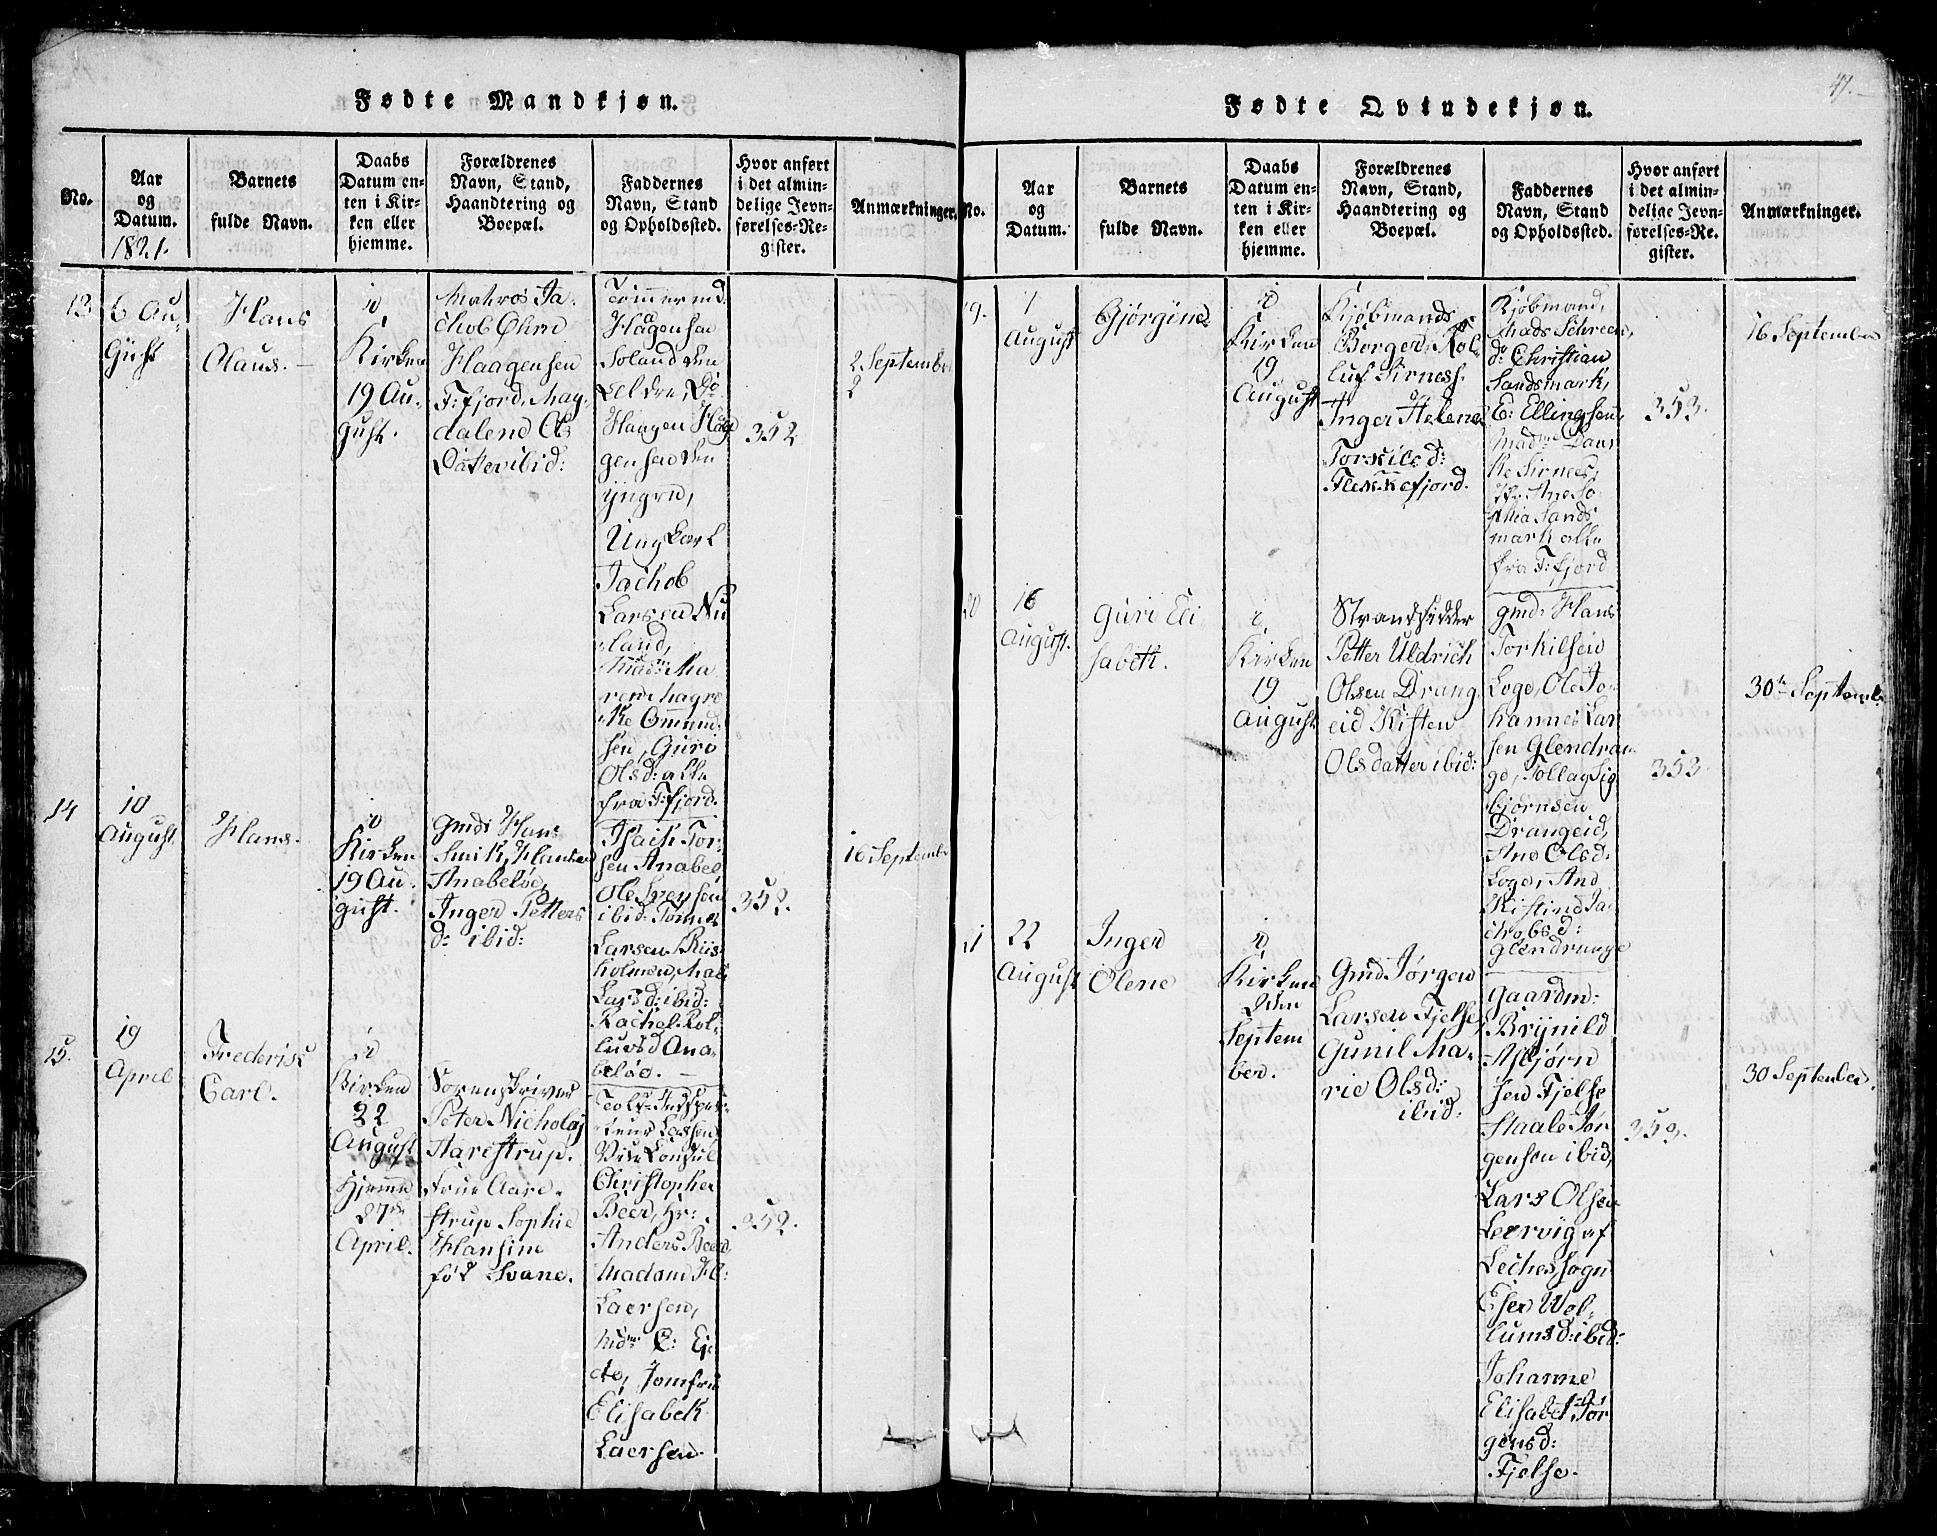 Fødte Mandkjøn.
No.
Aar
og
Datum.
1821.
Barnets
fulde Navn.
Daabs
Datum en-
ten i Kir-
ken eller
hjemme.
Forældrenes
Navn, Stand,
Haandtering og
Boepæl.
Faddernes
Navn, Stand
og Opholdssted.
Hvor anført
i det almin-
delige Jevn-
førelses-Re-
gister.
Anmærkninger.
13
6 Au-
gust
Hans
Olaus.
i
Kirken
19 Au-
gust.
Matros Ja-
chob Øhm
Haagensen
F:fjord, Mag-
dalene Ols
Datter ibid:
Tømmermd
Haagensen
Haagen Haa
gensen den
yngre,
Ungkarl
Jachob
Larsen Nu
land,
Madm Ma
ren
Ommund-
sen, Guro
Olsd: alle
fra F:fjord.
352
2 September
14
10
August
Hans.
i
Kirken
19 Au-
gust.
Gmd: Hans
Anabeløe,
Inger Petters
d: ibid:
Isach Tor-
sen Anabel,
Ole Svensen
ibid: Tønnes
Larsen Riis-
holmen, Mali
Larsd: ibid:
Rachel Rol-
luvsd Ana-
beløe.
352.
16 September
15.
19
April
Frederik
Carl.
i
Kirken
22
August
Hjemme
27de
April.
Sorenskriver
Peter Nicholaj
Aarestrup.
Frue Aare-
strup Sophie
Hansine
fød Svane.
Told-Inspec-
teur Lassen
Vice Consul
Christopher
Beer, Hr:
Anders Beer,
Madam
Laersen,
Jomfru
Elisabeth
Laersen.
352.
Fødte Qvindekjøn.
47.
No.
Aar
og
Datum.
Barnets
fulde Navn.
Daabs
Datum en-
ten i Kir-
ken eller
hjemme.
Forældrenes
Navn, Stand,
Haandtering og
Boepæl.
Faddernes
Navn, Stand
og Opholdssted.
Hvor anført
i det almin-
delige Jevn-
førelses-Re-
gister.
Anmærkninger.
19.
7
August
Gjørgine
i
Kirken
19
August
Kjøbmand
Borger Rol-
luf Sirness.
Inger Helene
Torkilsd:
Flekkefjord.
Kjøbmand,
Mads Schreen,
do Christian
Sandsmark,
E: Ellingsen,
Madme
Sirnees,
Ane So-
phia Sands
mark alle
fra F:fjord
353.
16 September
20
16
August.
Guri Eli
sabeth.
i
Kirken
19
August
Strandsidder
Petter Uldrich
Olsen Drang
eid Kisten
Olsdatter ibid:
gmd: Hans
Torkilsen
Loge, Ole Jo-
hannes Lar
sen Glendran
ge, Tollag Sig
bjørnsen
Drangeid,
Ane Olsd:
Loge, Ane
Kistine Ja
chobsd:
Glendrange
353.
30te Septembe
21
22
August
Inger
Olene
i
Kirken
2den
Septem
ber.
Gmd: Jørgen
Larsen Fjelse
Gunil Ma-
rie Olsd:
ibid:
Gaardm:
Brynild
Asbjørn
sen Fjelse
Staale Jør
gensen ibid,
Lars Olsen
Leervig af
Leches sogn
Eser Wol-
lumsd: ibid:
Johanne
Elisabet Jør
gensd:
Fjelse.
353.
30 September.